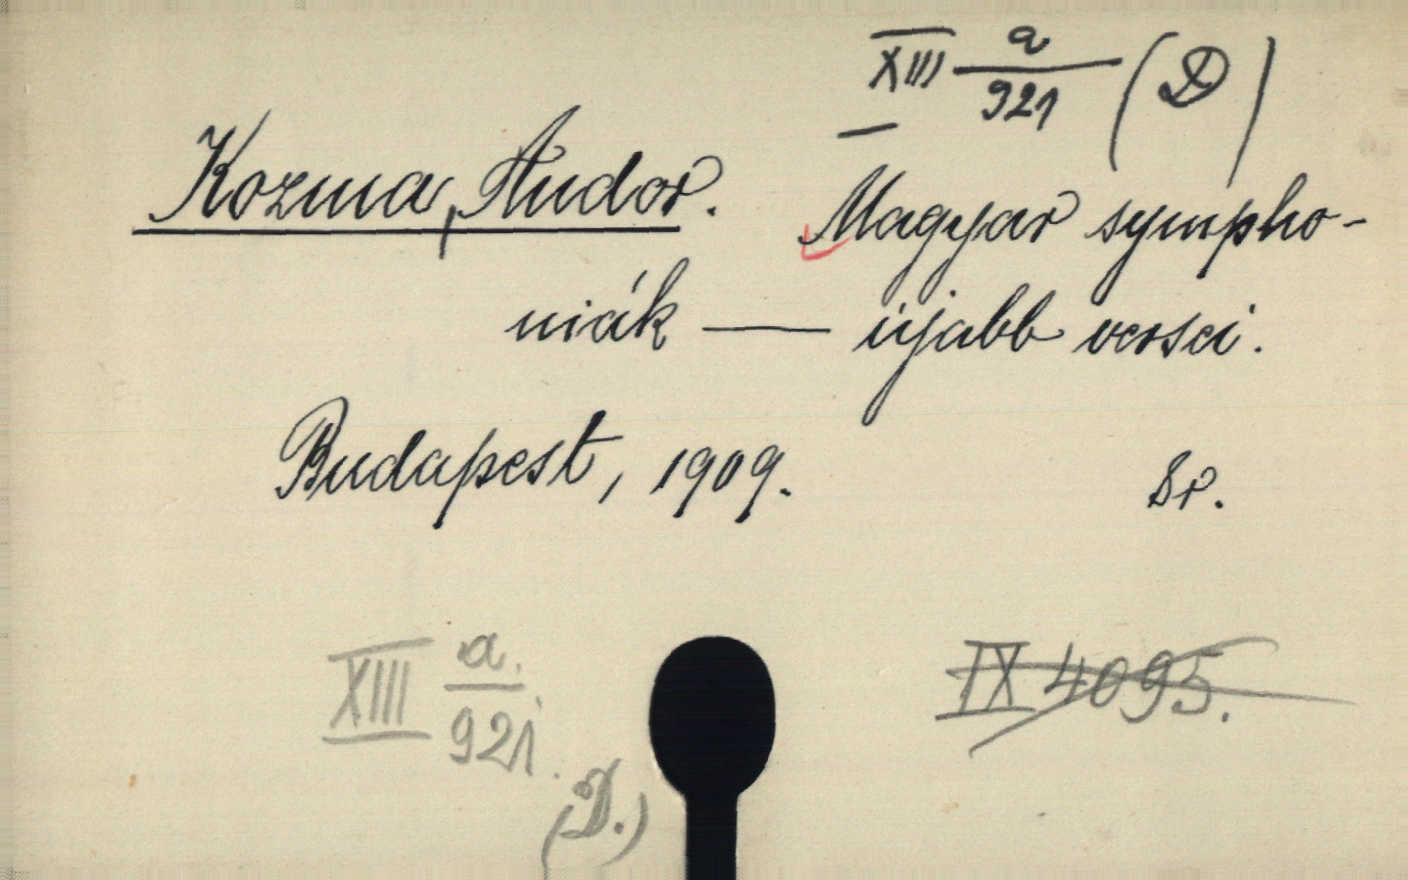 XIII a/921 (D)
Kozma, Andor. Magyar sympho-
niák — újabb versei.
Budapest, 1909. 8r.
XIII a./921. IX 4095.
(D.)